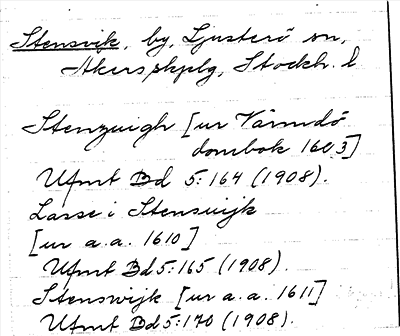 Stensvik, by, Ljusterö sn,
Åkers skplg, Stockh. l
Stenzuigh [ur Värmdö
dombok 1603]
Ufmt Bd 5:164 (1908).
Lasse i Stensuijk
[ur a.a. 1610]
Ufmt Bd 5:165 (1908).
Stenswijk [ur a.a. 1611]
Ufmt Bd 5:170 (1908).